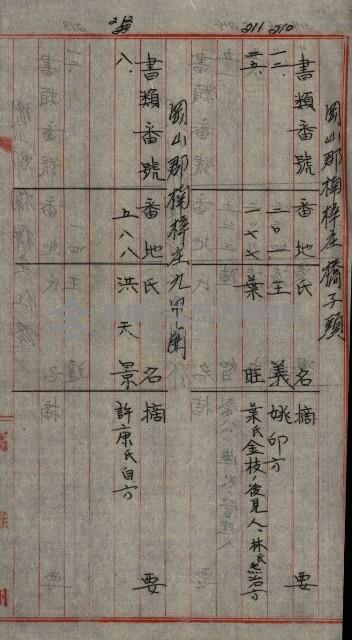 210
211
212
岡山郡楠梓庄橋子頭
書類番號 番地 氏名 摘要
一三 三〇一 王義 姚卯方
二五 二七七 葉旺 葉氏金枝ノ後見人、林氏愁治方
岡山郡楠梓庄九甲圍
書類番號 番地 氏名 摘要
八 五八八 洪天景 許康氏自方